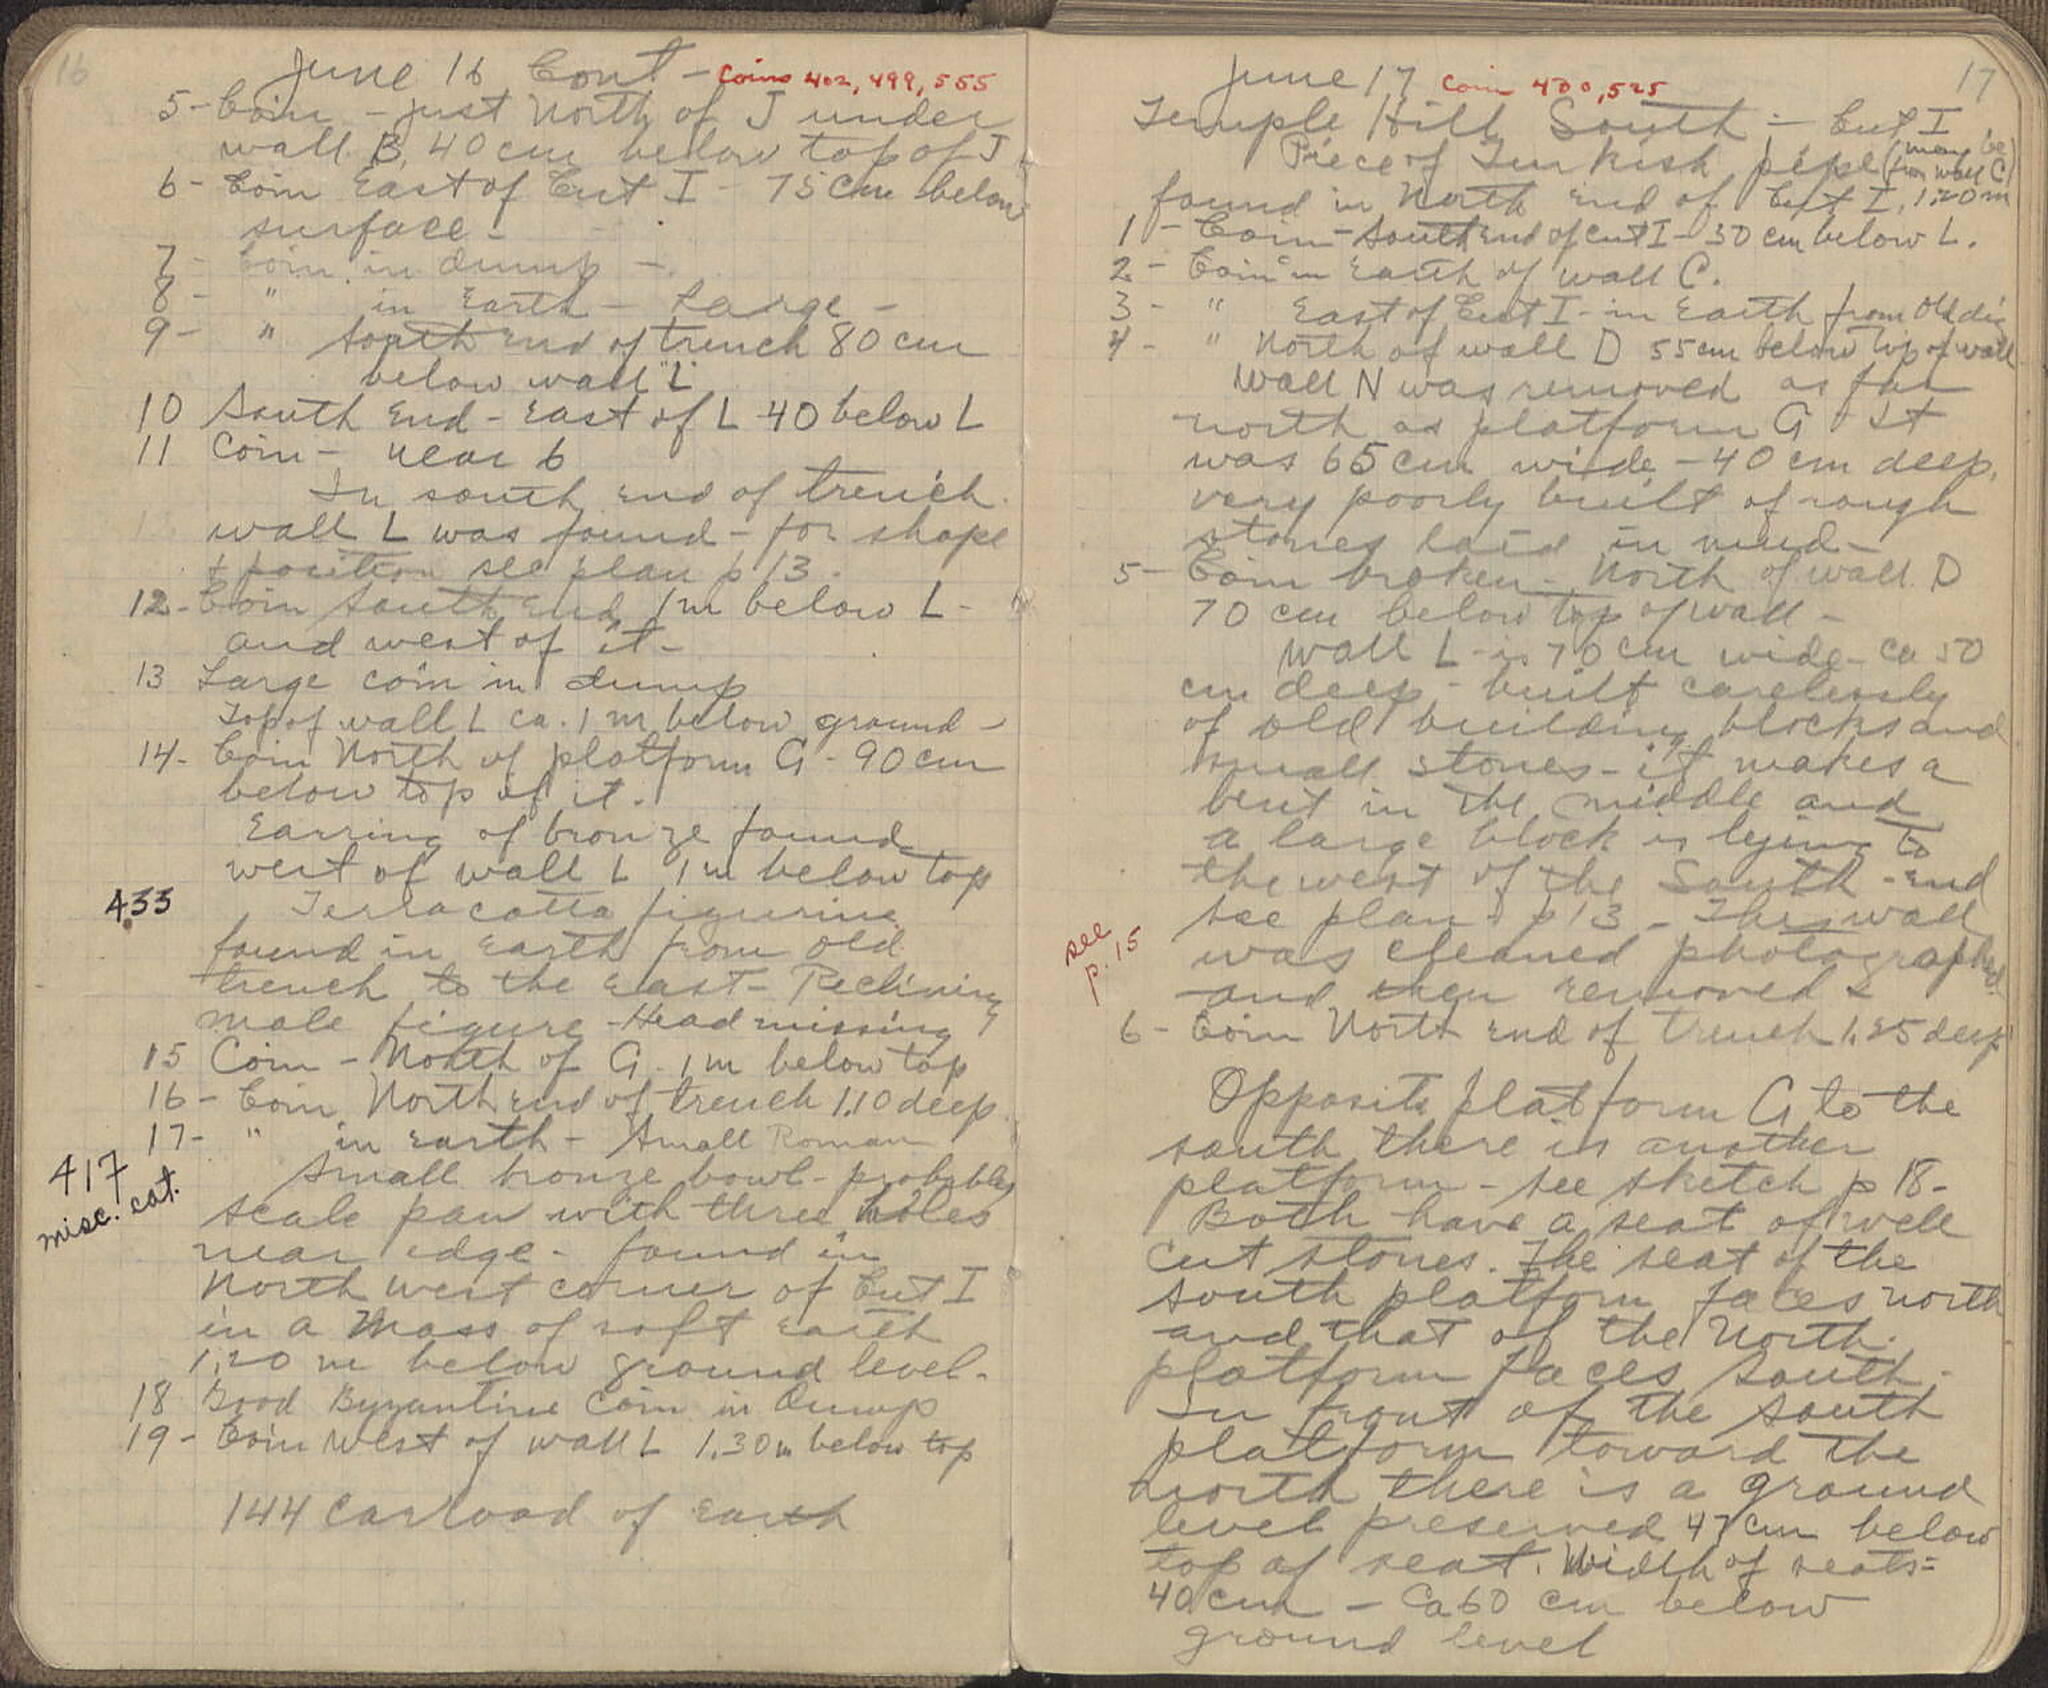 16
June 16 Cont - Coins 402, 499, 555
5 - Coin - just North of J under
wall B, 40 cm below top of J
6 - Coin East of Cut I - 75 cm below
surface -
7 - Coin in dump -
8 - " in Earth - Large -
9 - " South End of trench 80 cm
below wall "L"
10 South End - East of L 40 below L
11 Coin - near 6
In south end of trench
wall L was found - for shape
+ position see plan p 13.
12 - Coin South End 1 m below L -
and west of it -
13 Large coin in dump
Top of wall L ca. 1 m below ground -
14 - Coin North of platform G - 90 cm
below top of it.
Earring of bronze found
west of wall L 1 m below top
433 Terracotta figurine
found in Earth from old
trench to the East - Reclining
male figure - Head missing
15 Coin - North of G. 1 m below top
16 - Coin North End of trench 1.10 deep
17 - " in Earth - Small Roman
417 misc. cat.
Small bronze bowl - probably
scale pan with three holes
near edge - found in
North west corner of Cut I
in a mass of soft earth
1.20 m below ground level -
18 Good Byzantine Coin in Dump
19 - Coin West of wall L 1.30 m below top
144 Carload of Earth
17
June 17 Coin 400, 525
Temple Hill South - Cut I
Piece of Turkish pipe (may be
from wall C)
found in North End of Cut I, 1.20 m
1 - Coin - South End of cut I - 30 cm below L.
2 - Coin in Earth of wall C.
3 - " East of Cut I - in Earth from Old dig
4 - " North of wall D 55 cm below top of wall
Wall N was removed as far
north as platform G It
was 65 cm wide - 40 cm deep,
very poorly built of rough
stones laid in mud -
5 - Coin broken - North of wall D
70 cm below top of wall -
Wall L is 70 cm wide - ca 50
cm deep - built carelessly
of old building blocks and
small stones - it makes a
bent in the middle and
a large block is lying to
the west of the South - end
see plan p 13 - This wall
see p. 15
was cleaned photographed
and then removed -
6 - Coin North End of trench 1.25 deep
Opposite platform G to the
south there is another
platform - see sketch p 18 -
Both have a seat of well
cut stones. The seat of the
south platform faces north
and that of the North
platform faces South -
In front of the South
platform toward the
north there is a ground
level preserved 47 cm below
top of seat. Width of seats =
40 cm - Ca 60 cm below
ground level